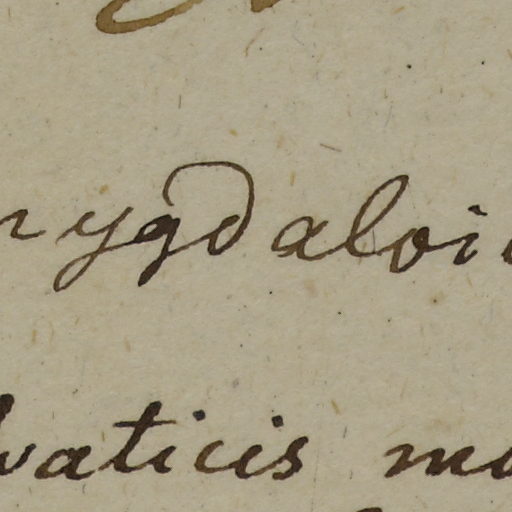 mygdaloi
lvaticis mo